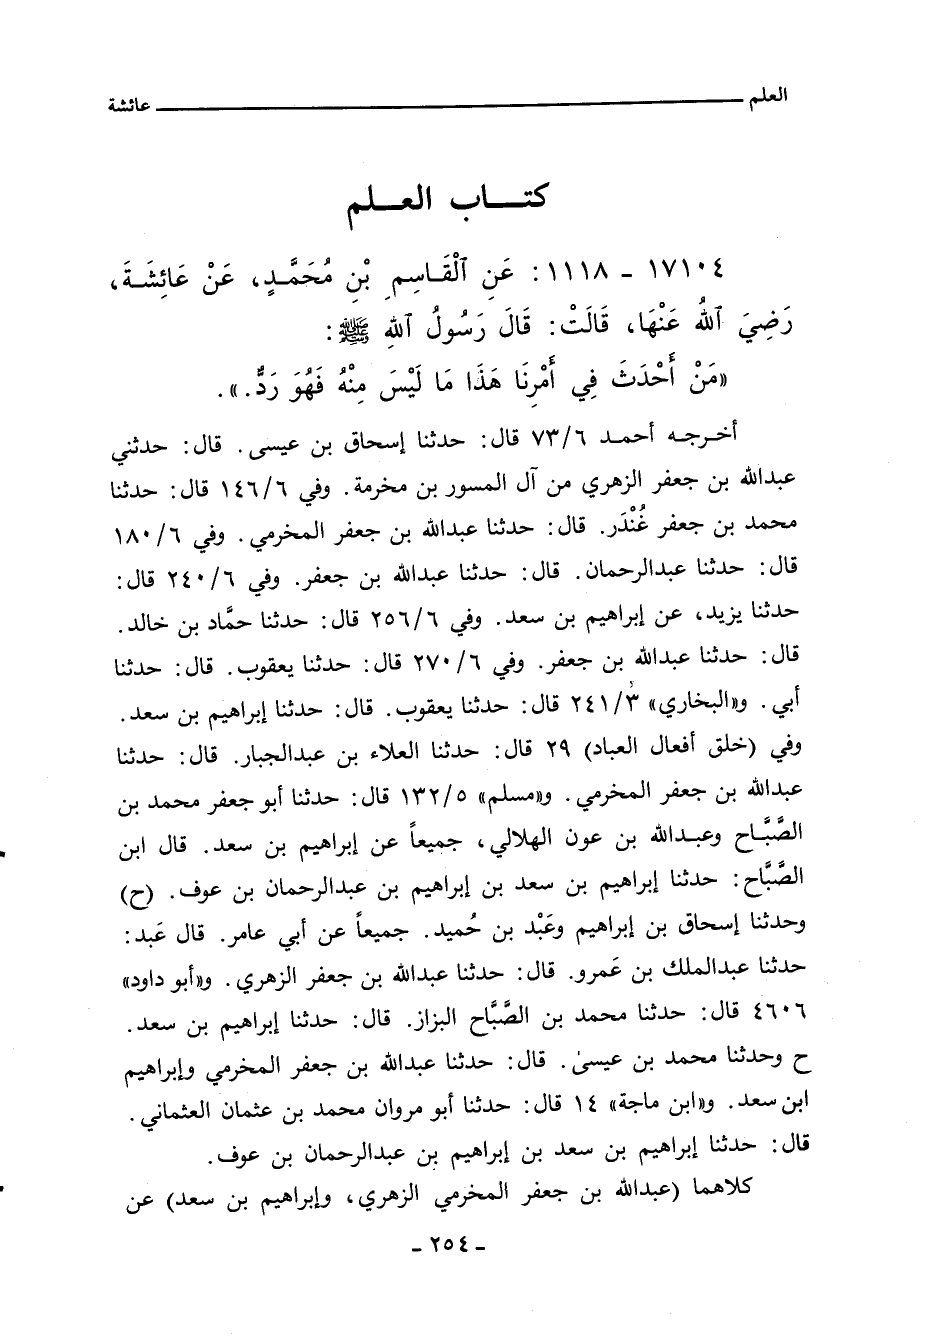 العلم ــــــــــ عائشة
كتـــاب العـــلم
١٧١٠٤ - ١١١٨: عَنِ ٱلْقَاسِمِ بْنِ مُحَمَّـدٍ، عَنْ عَائِشَةَ،
رَضِيَ ٱللهُ عَنْهَا، قَالَتْ: قَالَ رَسُولُ ٱللهِ ﷺ:
«مَنْ أَحْدَثَ فِي أَمْرِنَا هَذَا مَا لَيْسَ مِنْهُ فَهُوَ رَدٌّ.».
أخـرجـه أحمـد ٧٣/٦ قال: حدثنا إسحاق بن عيسى. قال: حدثني
عبدالله بن جعفر الزهري من آل المسور بن مخرمة. وفي ١٤٦/٦ قال: حدثنا
محمد بن جعفر غُنْدَر. قال: حدثنا عبدالله بن جعفر المخرمي. وفي ١٨٠/٦
قال: حدثنا عبدالرحمان. قال: حدثنا عبدالله بن جعفر. وفي ٢٤٠/٦ قال:
حدثنا يزيد، عن إبراهيم بن سعد. وفي ٢٥٦/٦ قال: حدثنا حمَّاد بن خالد.
قال: حدثنا عبدالله بن جعفر. وفي ٢٧٠/٦ قال: حدثنا يعقوب. قال: حدثنا
أبي. و«البخاري» ٢٤١/٣ قال: حدثنا يعقوب. قال: حدثنا إبراهيم بن سعد.
وفي (خلق أفعال العباد) ٢٩ قال: حدثنا العلاء بن عبدالجبار. قال: حدثنا
عبدالله بن جعفر المخرمي. و«مسلم» ١٣٢/٥ قال: حدثنا أبو جعفر محمد بن
الصَّبَّـاح وعبـدالله بن عون الهلالي، جميعاً عن إبراهيم بن سعد. قال ابن
الصَّبَّاح: حدثنا إبراهيم بن سعد بن إبراهيم بن عبدالرحمان بن عوف. (ح)
وحدثنا إسحاق بن إبراهيم وعَبْد بن حُميد. جميعاً عن أبي عامر. قال عَبد:
حدثنا عبدالملك بن عَمرو. قال: حدثنا عبدالله بن جعفر الزهري. و«أبو داود»
٤٦٠٦ قال: حدثنا محمد بن الصَّبَّاح البزاز. قال: حدثنا إبراهيم بن سعد.
ح وحدثنا محمد بن عيسىٰ. قال: حدثنا عبدالله بن جعفر المخرمي وإبراهيم
ابن سعد. و«ابن ماجة» ١٤ قال: حدثنا أبو مروان محمد بن عثمان العثماني.
قال: حدثنا إبراهيم بن سعد بن إبراهيم بن عبدالرحمان بن عوف.
كلاهما (عبدالله بن جعفر المخرمي الزهري، وإبراهيم بن سعد) عن
- ٢٥٤ -